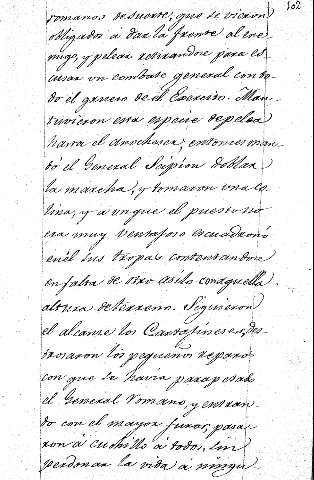 102
romanos de suerte, que se vieron
obligados á dar la frente al ene-
migo, y pelear retirandose para es-
cusar un combate general con to-
do el grueso de el Exercito. Man-
tuvieron esta especie de pelea
hasta el anochecer; entonces man-
dó el General Scipion doblar
la marcha, y tomaron una co-
lina, y aunque el puesto no
era muy ventajoso escuadronó
en él sus tropas contentandose
en falta de otro asilo con aquella
altura de terreno. Siguieron
el alcanze los Cartagineses, des-
trozaron los pequeños reparos
con que se havia parapetado
el General Romano, y entran-
do con el mayor furor, pasa-
ron á cuchillo á todos, sin
perdonar la vida á ningu-